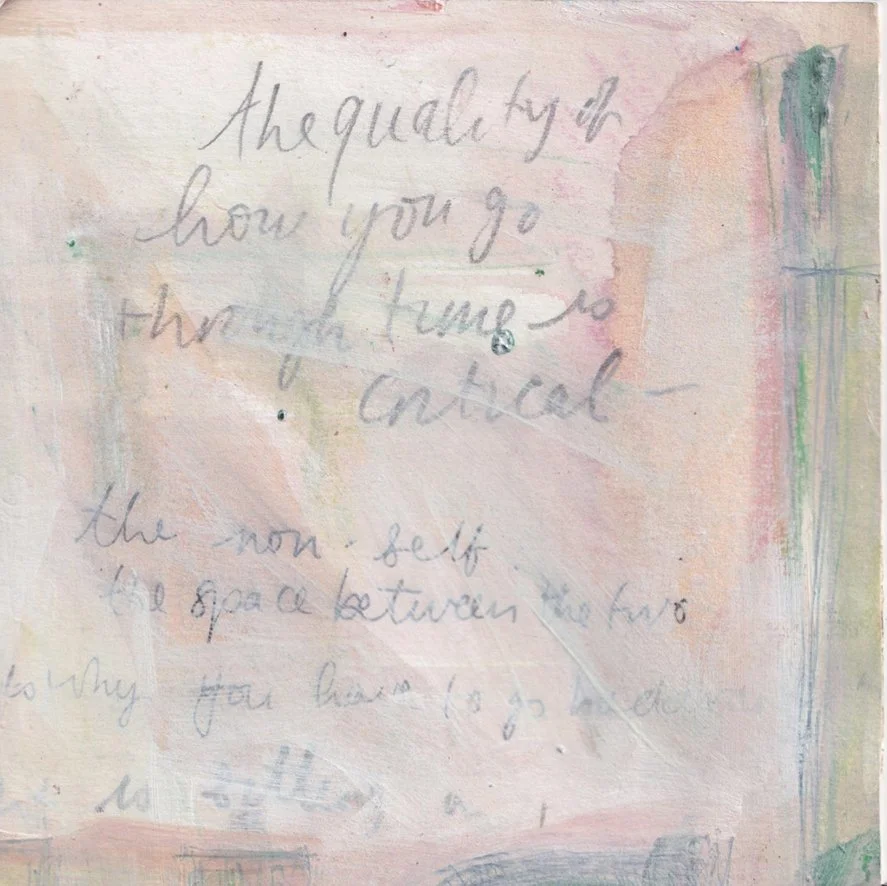 the quality of
how you go
through time is
critical –
the non-self
the space between the two
why you have to go
is